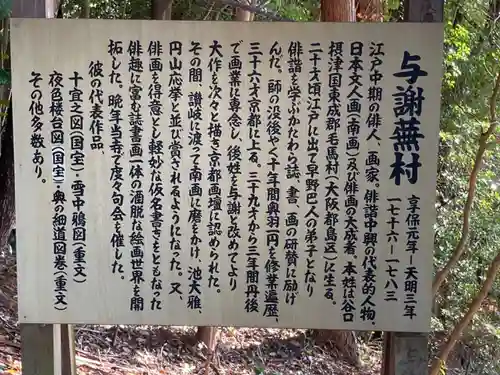 与謝蕪村
享保元年－天明三年
一七十六－一七八三
江戸中期の俳人、画家。俳諧中興の代表的人物、
日本文人画(南画)及び俳画の大成者。本姓は谷口
摂津国東成郡毛馬村(大阪都島区)に生る。
二十才頃江戸に出て早野巴人の弟子となり
俳諧を学ぶかたわら詩、書、画の研賛に励げ
んだ。師の没後やく十年間奥羽一円を修業遍歴、
三十六才京都に上る。三十九才から三年間丹後
で画業に専念し、後姓を与謝と改めてより
大作を次々と描き京都画壇に認められた。
その間、讃岐に渡って南画に磨をかけ、池大雅、
円山応挙と並び賞されるようになった。又、
俳画を得意とし軽妙な仮名書きをともなった
俳趣に富む誌書画一体の洒脱な絵画世界を開
拓した。晩年当寺で度々句会を催した。
彼の代表作品、
十宜之図(国宝)・雪中鴉図(重文)
夜色楼台図(国宝)・奥の細道図巻(重文)
その他多数あり。